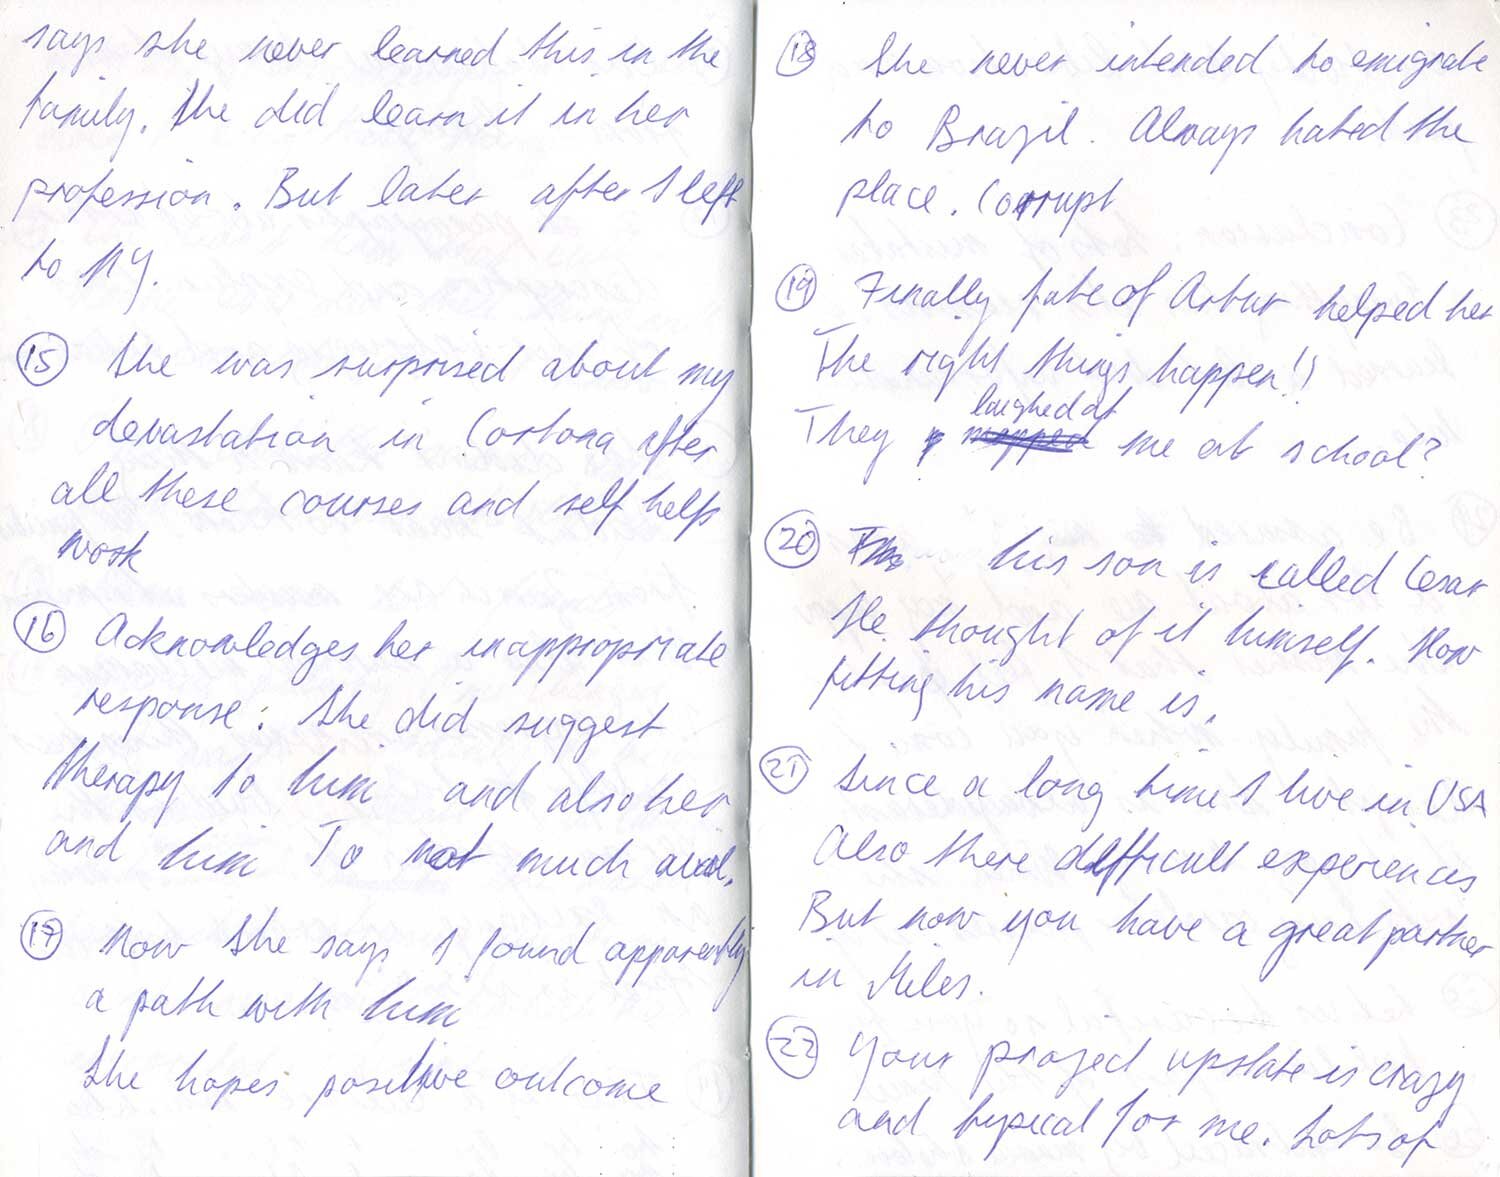 says she never learned this in the
family. She did learn it in her
profession. But later after I left
to NY.
15 She was surprised about my
devastation in Cortona after
all these courses and self help
work
16 Acknowledges her inappropriate
response: She did suggest
therapy to him and also her
and him To not much avail.
17 Now she says I found apparently
a path with him
She hopes positive outcome
18 She never intended to emigrate
to Brazil. Always hated the
place. Corrupt
19 Finally fate of Artur helped her
The right things happen!)
laughed at
They me at school?
20 his son is called Cesar
He thought of it himself. How
fitting his name is.
21 Since a long time I live in USA
Also there difficult experiences
But now you have a great partner
in Miles.
22 Your project upstate is crazy
and typical for me. Lots of